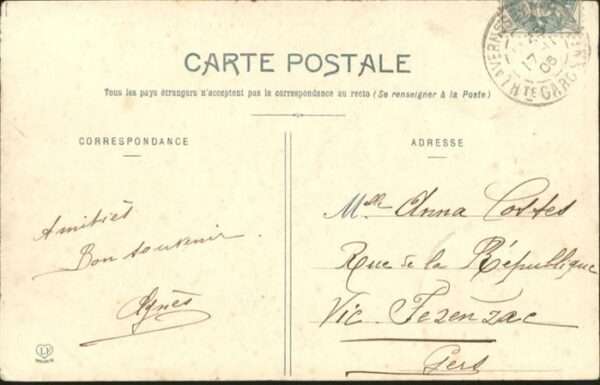 CARTE POSTALE
Tous les pays étrangers n'acceptent pas la correspondance au recto (Se renseigner à la Poste)
CORRESPONDANCE
ADRESSE
Amitiés
Bon souvenir.
Agnès
Mlle Anna Costes
Rue de la République
Vic. Fezenzac
Gers
17
06
Hte GARONNE